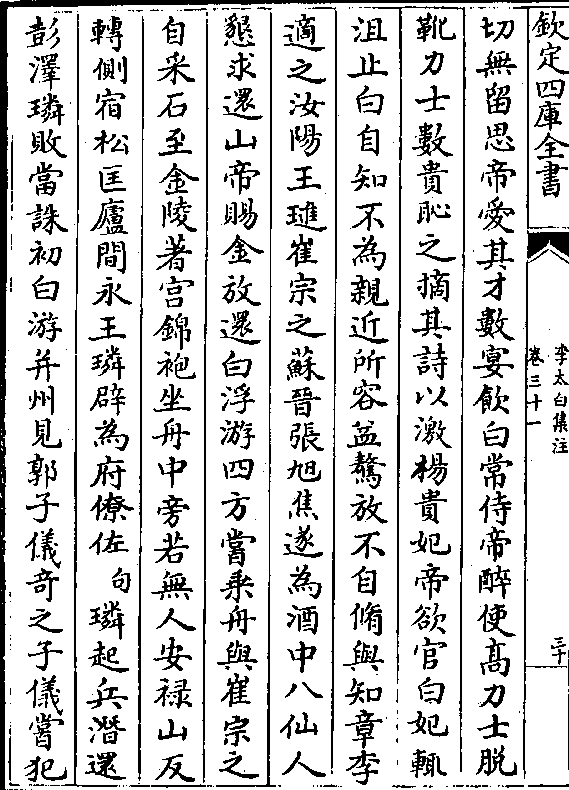 欽定四庫全書
李太白集注
卷三十一
三十
切無留思帝愛其才數宴飲白常侍帝醉使髙力士脱
靴力士數貴恥之摘其詩以激楊貴妃帝欲官白妃輒
沮止白自知不為親近所容益驁放不自脩與知章李
適之汝陽王璡崔宗之蘇晉張旭焦遂為酒中八仙人
懇求還山帝賜金放還白浮游四方嘗乗舟與崔宗之
自采石至金陵著宫錦袍坐舟中旁若無人安禄山反
轉側宿松匡廬間永王璘辟為府僚佐句璘起兵潛還
彭澤璘敗當誅初白游并州見郭子儀竒之子儀嘗犯